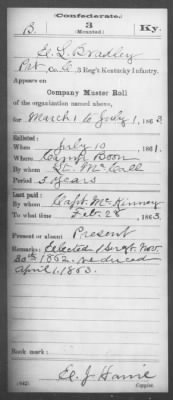 Confederate.
3
(Mounted.)
B
Ky.
G. L. Bradley
Pvt Co. C, 3 Reg't Kentucky Infantry.
Appears on
Company Muster Roll
of the organization named above,
for March 1 to July 1, 1863.
Enlisted:
When July 10, 1861.
Where Camp Boon
By whom Lt. McCall
Period 3 Years
Last paid:
By whom Capt. McKinney
To what time Feb. 28, 1863.
Present or absent Present
Remarks: Elected 1 Sergt. Nov.
20th 1862. reduced
April 1, 1863.
Book mark:
(642)
Copyist.